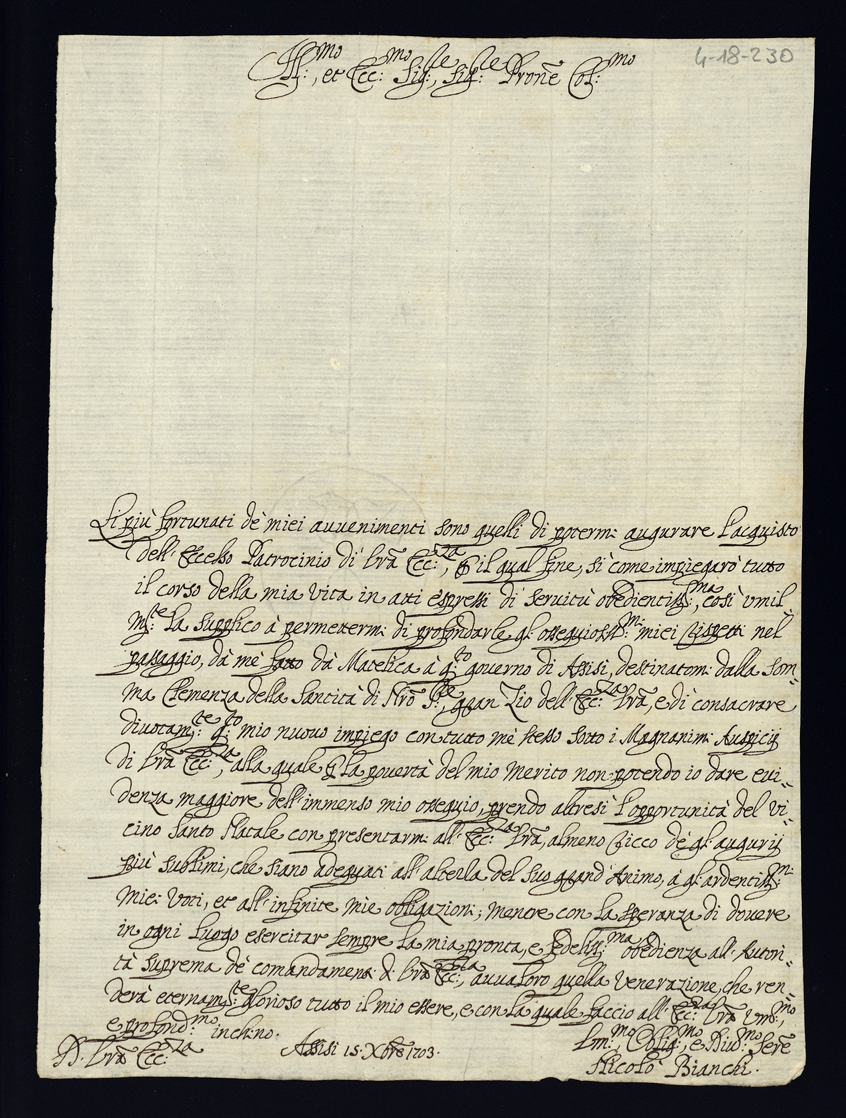 4-18-230
Ill:mo, et Ecc:mo Sig:re, Sig:re Prone Col:mo
Li più fortunati de' miei avvenimenti sono quelli di poterm: augurare l'acquisto
dell'Eccelso Patrocinio di Vrã Ecc:za, p il qual fine, si come impiegarò tutto
il corso della mia Vita in atti espressi di servitù obedientiss:ma, così vmil-
m:te La supplico à permetterm: di profondarle gl: ossequiosiss:mi miei rispetti nel
passaggio, dà mè fatto dà Matelica à q:to governo di Assisi, destinatom: dalla Som-
ma Clemenza della Santità di Nrõ S:re, gran Zio dell'Ecc:za Vrã, e di consacrare
divotam:te q:to mio nuovo impiego con tutto mè stesso sotto i Magnanim: Auspicij
di Vrã Ecc:za, alla quale p La povertà del mio Merito non potendo io dare evi-
denza maggiore dell'immenso mio ossequio, prendo altresì l'opportunità del vi-
cino Santo Natale con presentarm: all'Ecc:za Vrã, almeno ricco de gl: augurij
più sublimi, che siano adeguati all'altezza del Suo grand'Animo, à gl: ardentiss:mi
mie: Voti, et all'infinite mie obbligazion:; mentre con La speranza di dovere
in ogni Luogo esercitar sempre La mia pronta, e fedeliss:ma obedienza all'Autori-
tà suprema de' comandament: d: Vrã Ecc:za, avvaloro quella Venerazione, che ren-
derà eternam:te glorioso tutto il mio essere, e con La quale faccio all'Ecc:za Vrã vm:mo,
e profond:mo inchino.
D: Vrã Ecc:za Assisi 15. Xbre 1703.
Vm:mo, Oblig:mo, e Div:mo Serẽ
Nicolò Bianchi.